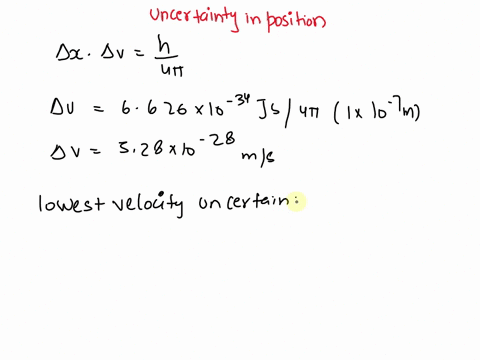 uncertainty in position
Δx · Δv = h/4π
Δv = 6.626 × 10⁻³⁴ Js / 4π (1 × 10⁻⁷ m)
Δv = 5.28 × 10⁻²⁸ m/s
lowest velocity uncertain: